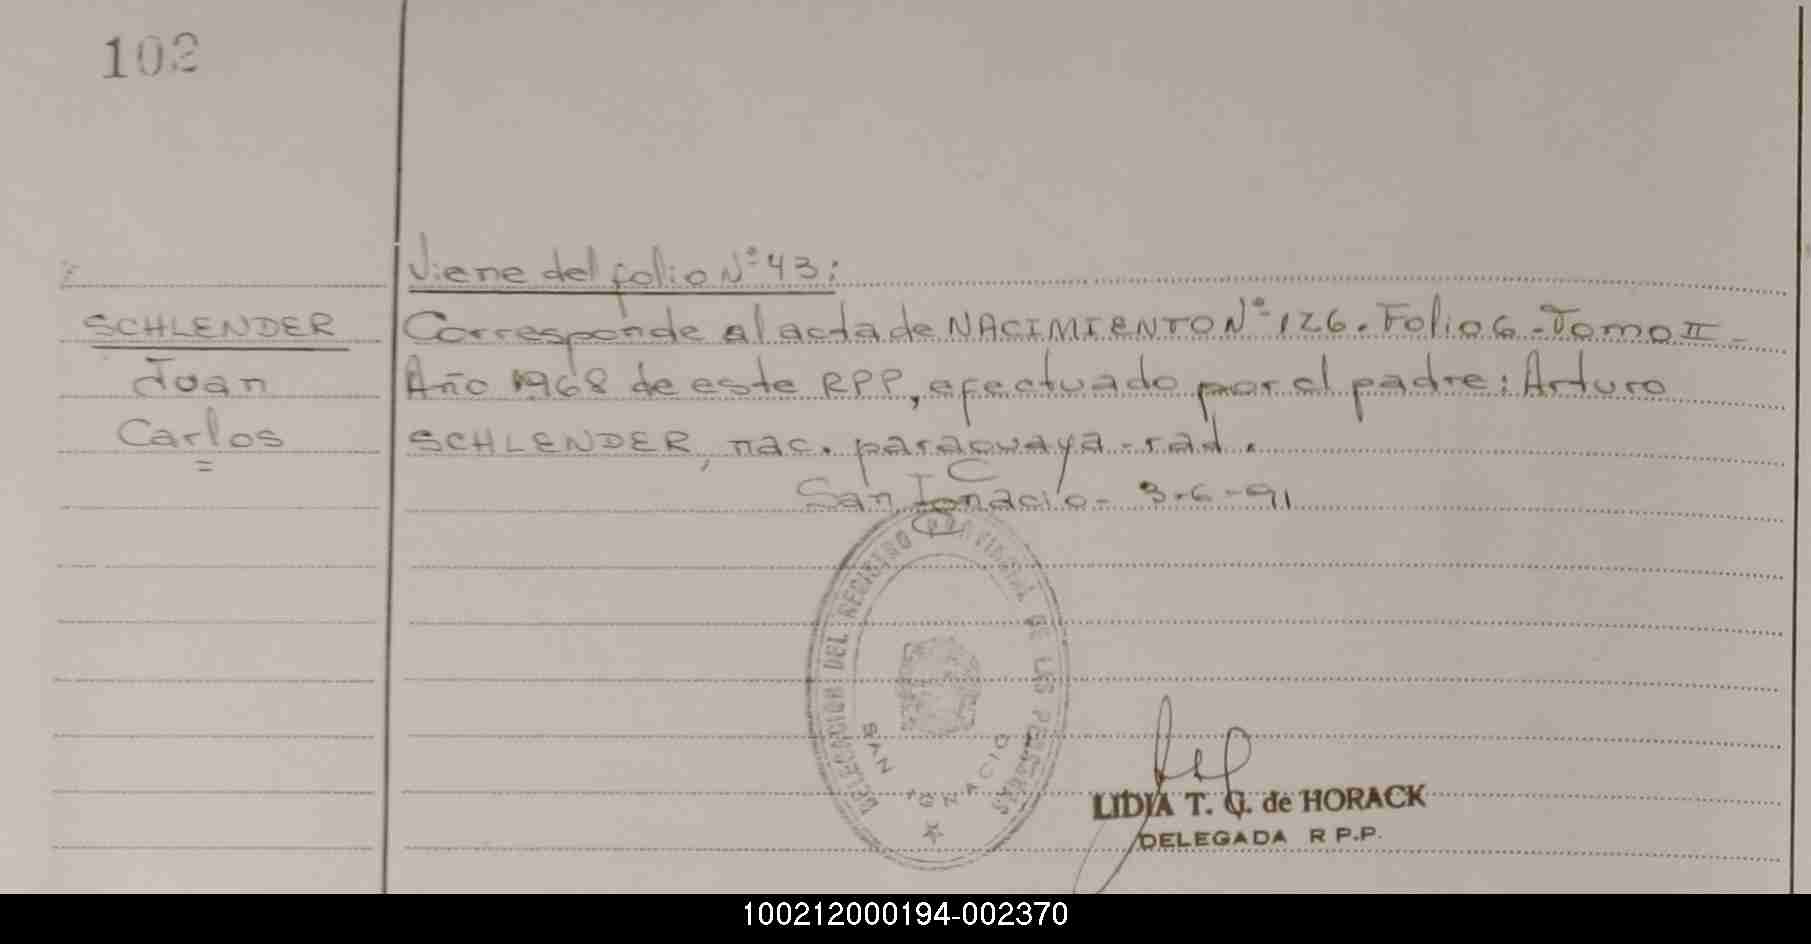 102
Viene del folio Nº 43:
SCHLENDER
Juan
Carlos
=
Corresponde al acta de NACIMIENTO Nº 126. Folio 6 - Tomo II -
Año 1968 de este RPP, efectuado por el padre: Arturo
SCHLENDER, nac. paraguaya - rad.
San Ignacio - 3-6-91
DELEGACION DEL REGISTRO PROVINCIAL DE LAS PERSONAS
SAN IGNACIO
LIDIA T. G. de HORACK
DELEGADA R P.P.
100212000194-002370